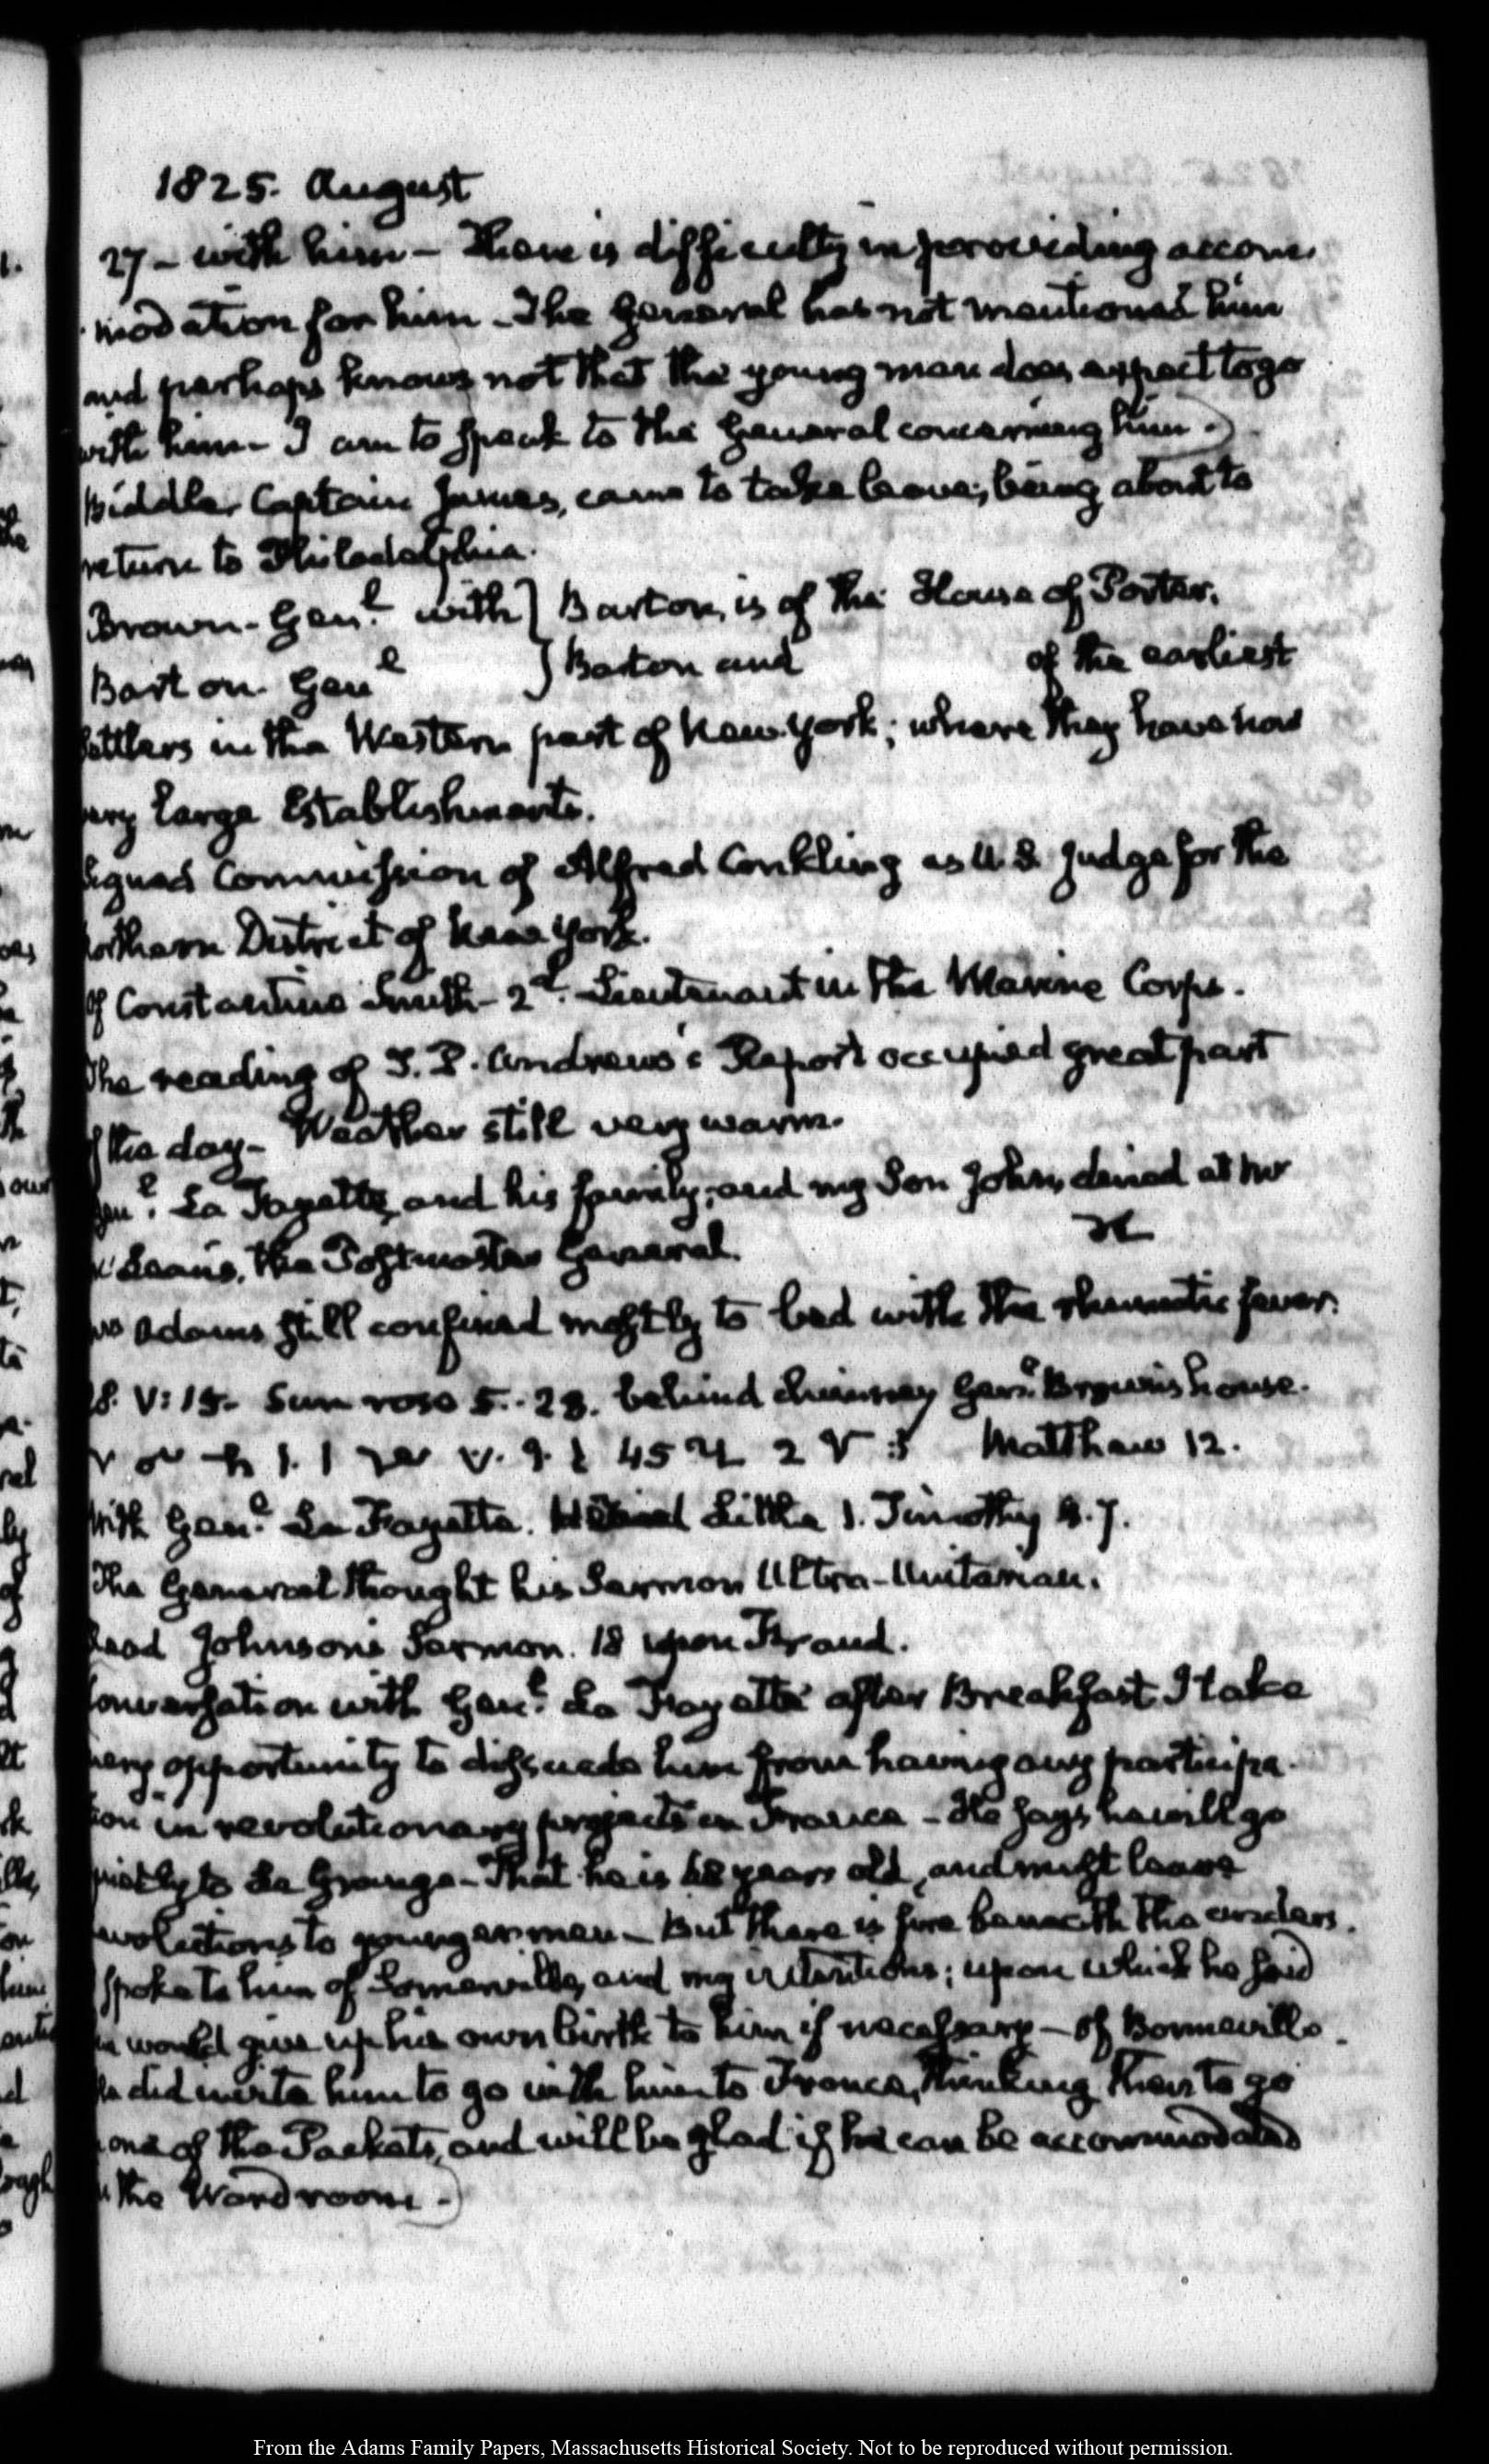 1825. August
27 - with him - There is difficulty in providing accom
modation for him - The General has not mentioned him
and perhaps knows not that the young man does expect to go
with him - I am to speak to the General concerning him.)
Biddle, Captain James, came to take leave, being about to
return to Philadelphia.
Brown. Genl. with } Barton, is of the House of Porter,
Barton. Genl } Barton and of the earliest
settlers in the Western part of New York; where they have now
very large Establishments.
Signed Commission of Alfred Conkling as U.S. Judge for the
Northern District of New York.
Of Constantine Smith - 2d. Lieutenant in the Marine Corps.
The reading of T. P. Andrews's Report occupied great part
of the day - Weather still very warm.
Genl. La Fayette, and his family, and my Son John, dined at Mr
McLean's, the Postmaster General.
Mrs Adams still confined mostly to bed with the rheumatic fever.
28. V: 15. Sun rose 5..28. behind chimney Genl. Brown's house.
45 2 Matthew 12.
With Genl. La Fayette. Little 1. Timothy
The General thought his Sermon Ultra-Unitarian.
Read Johnson's Sermon. 18 upon Fraud.
Conversation with Genl. La Fayette after Breakfast. I take
every opportunity to dissuade him from having any participa-
tion in revolutionary projects in France - He says he will go
quietly to La Grange - That he is 68 years old, and must leave
revolutions to younger men - But there is fire beneath the cinders.
spoke to him of Somerville, and my intentions; upon which he said
he would give up his own birth to him if necessary - of Bonneville.
He did invite him to go with him to France, thinking then to go
one of the Packets, and will be glad if he can be accommodated
in the Wardroom.)
From the Adams Family Papers, Massachusetts Historical Society. Not to be reproduced without permission.